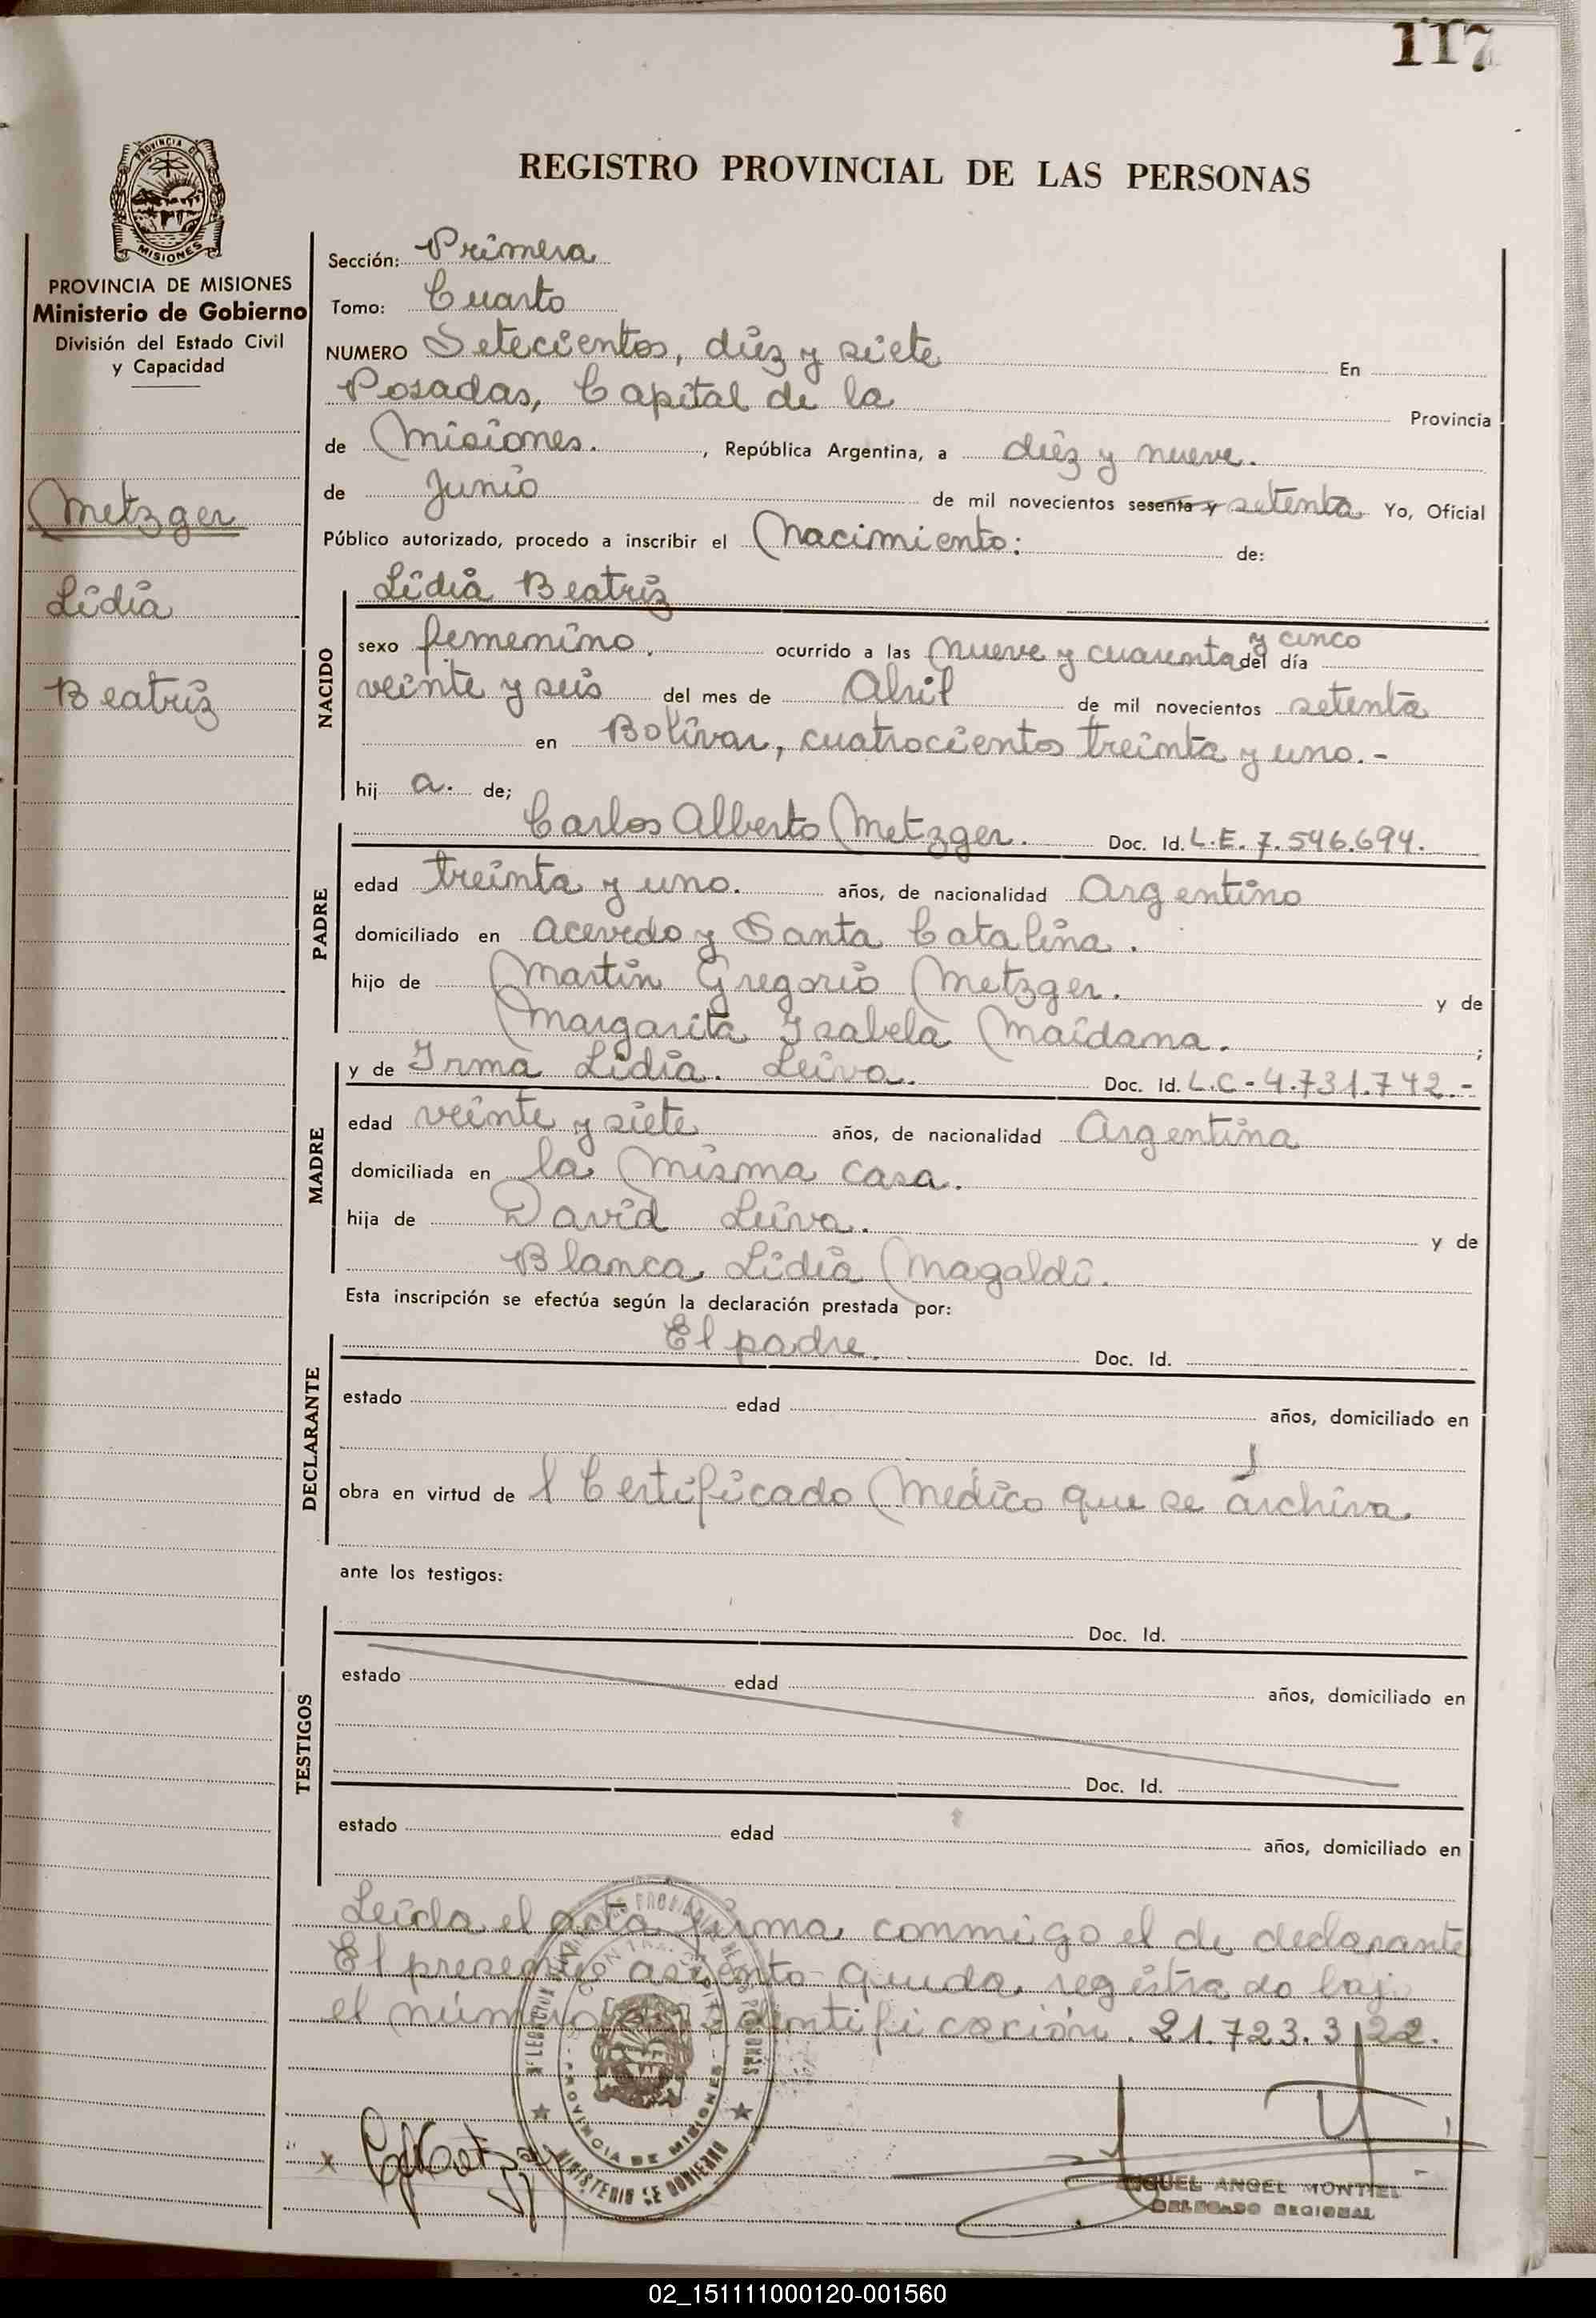 117
PROVINCIA DE
MISIONES
PROVINCIA DE MISIONES
Ministerio de Gobierno
División del Estado Civil
y Capacidad
Metzger
Lidia
Beatriz
REGISTRO PROVINCIAL DE LAS PERSONAS
Sección: Primera
Tomo: Cuarto
NUMERO Setecientos, diez y siete En
Posadas, Capital de la Provincia
de Misiones. , República Argentina, a diez y nueve.
de Junio de mil novecientos sesenta y setenta Yo, Oficial
Público autorizado, procedo a inscribir el Nacimiento: de:
NACIDO
Lidia Beatriz
sexo femenino. ocurrido a las nueve y cuarenta y cinco del día
veinte y seis del mes de Abril de mil novecientos setenta
en Bolívar, cuatrocientos treinta y uno.-
hij a. de;
PADRE
Carlos Alberto Metzger. Doc. Id. L.E. 7.546.694.
edad treinta y uno. años, de nacionalidad Argentino
domiciliado en Acevedo y Santa Catalina.
hijo de Martin Gregorio Metzger. y de
Margarita Isabela Maidana. ;
MADRE
y de Irma Lidia. Leiva. Doc. Id. L.C-4.731.742.-
edad veinte y siete años, de nacionalidad Argentina
domiciliada en la misma casa.
hija de David Leiva. y de
Blanca Lidia Magaldi.
Esta inscripción se efectúa según la declaración prestada por:
DECLARANTE
El padre. Doc. Id.
estado edad años, domiciliado en
obra en virtud de l Certificado Medico que se archiva
ante los testigos:
TESTIGOS
Doc. Id.
estado edad años, domiciliado en
Doc. Id.
estado edad años, domiciliado en
Leida el acta firma conmigo el de declarante
El presente asiento queda registrado bajo
el número de identificación. 21.723.322.
PROVINCIA DE MISIONES
MINISTERIO DE GOBIERNO
MIGUEL ANGEL MONTIEL
DELEGADO REGIONAL
02_151111000120-001560